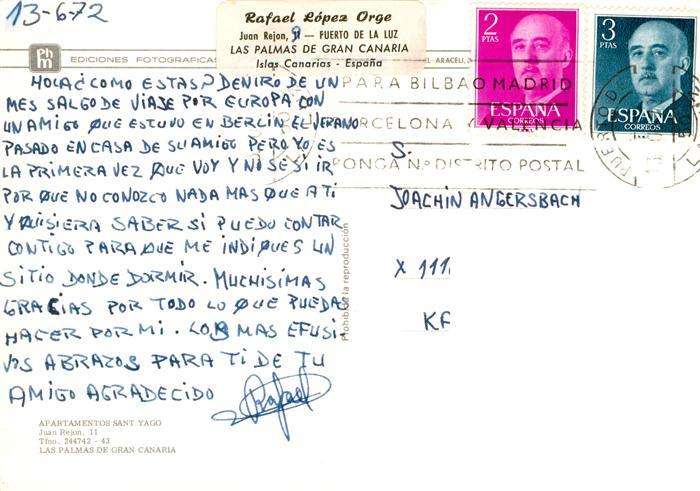 13-6-72
Rafael López Orge
Juan Rejon, 11 — PUERTO DE LA LUZ
LAS PALMAS DE GRAN CANARIA
Islas Canarias - España
Phm EDICIONES FOTOGRAFICAS
EL ARACELI,
HOLA ¿COMO ESTAS? DENTRO DE UN
MES SALGO DE VIAJE POR EUROPA CON
UN AMIGO QUE ESTUVO EN BERLIN EL VERANO
PASADO EN CASA DE SU AMIGO PERO YO ES
LA PRIMERA VEZ QUE VOY Y NO SE SI IR
POR QUE NO CONOZCO NADA MAS QUE A TI
Y QUISIERA SABER SI PUEDO CONTAR
CONTIGO PARA QUE ME INDIQUES UN
SITIO DONDE DORMIR. MUCHISIMAS
GRACIAS POR TODO LO QUE PUEDAS
HACER POR MI. LOS MAS EFUSI-
VOS ABRAZOS PARA TI DE TU
AMIGO AGRADECIDO Rafael
APARTAMENTOS SANT YAGO
Juan Rejon, 11
Tfno. 244742 - 43
LAS PALMAS DE GRAN CANARIA
Prohibida la reproducción
2 PTAS
ESPAÑA
CORREOS
3 PTAS
ESPAÑA
CORREOS
PARA BILBAO MADRID
BARCELONA Y VALENCIA
PONGA Nº DISTRITO POSTAL
S.
JOACHIN ANGERSBACH
X 111
KF